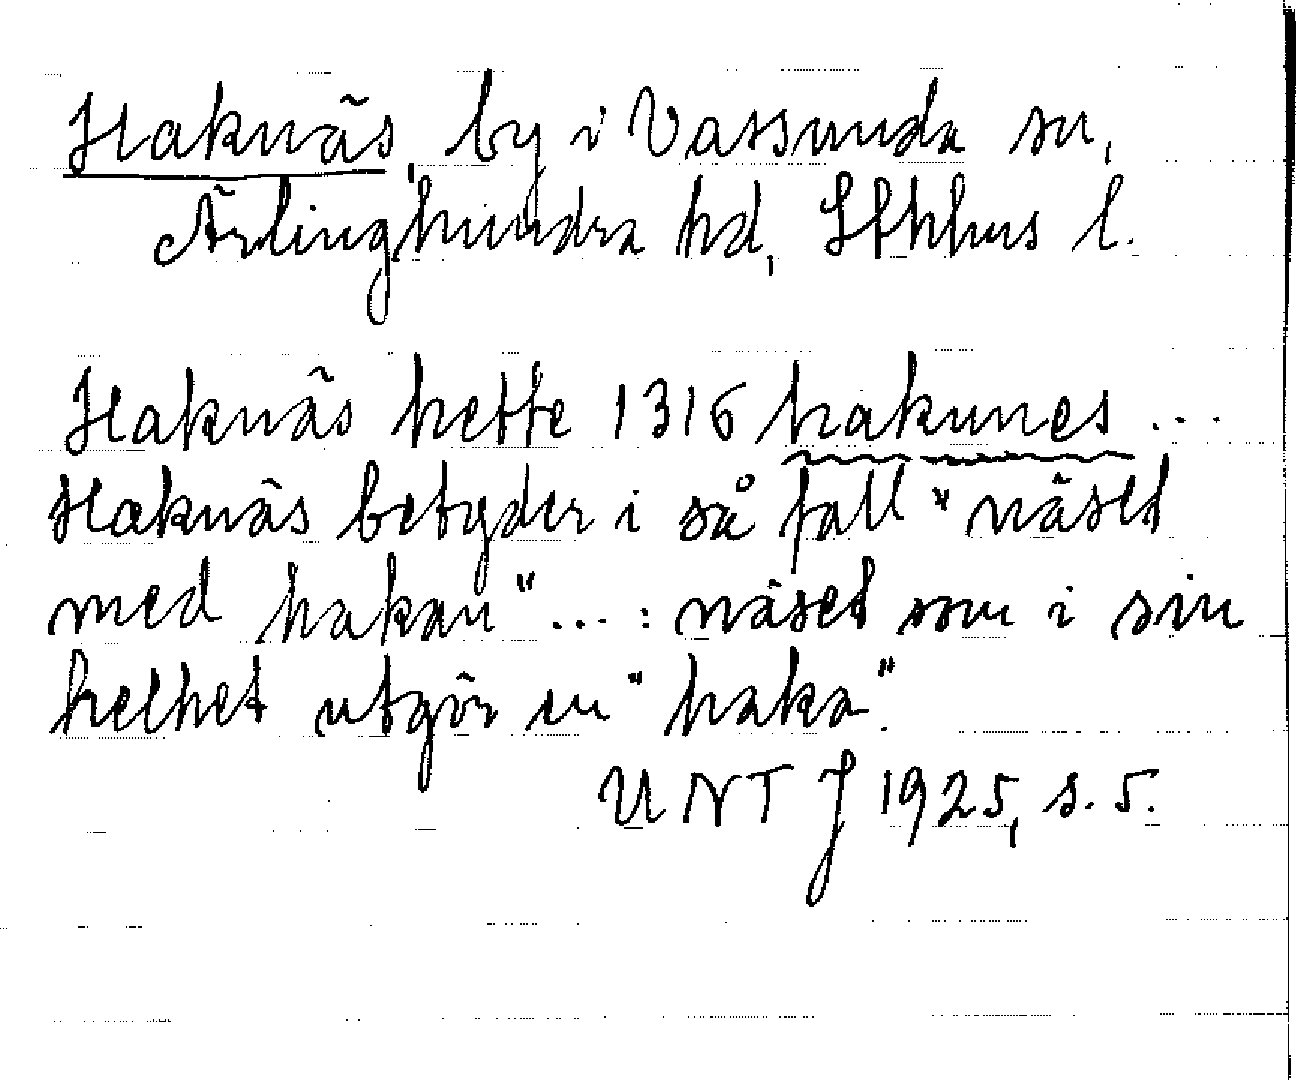 Haknäs, by i Vassunda sn,
Ärlinghundra hd, Sthlms l.
Haknäs hette 1316 hakunes...
Haknäs betyder i så fall "näset
med hakan"...: näset som i sin
helhet utgör en "haka".
UNT J 1925, s. 5.